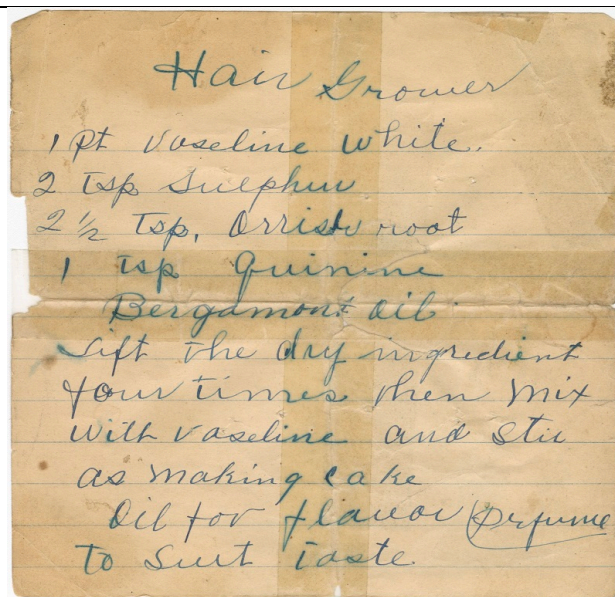 Hair Grower
1 Pt Vaseline White.
2 Tsp Sulphur
2 1/2 Tsp. Orrish root
1 Tsp Quinine
Bergamont Oil.
Sift the dry ingredient
four times then mix
with vaseline and stir
as making cake
Oil for flavor (perfume
to Suit Taste.